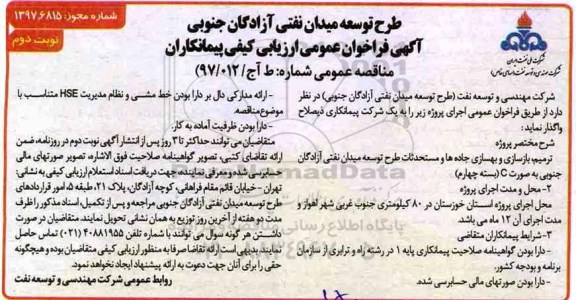 شماره مجوز: ۱۳۹۷،۶۸۱۵
نوبت دوم
طرح توسعه میدان نفتی آزادگان جنوبی
آگهی فراخوان عمومی ارزیابی کیفی پیمانکاران
مناقصه عمومی شماره: ط آج/۹۷/۰۱۲
شرکت ملی نفت ایران
شرکت مهندسی و توسعه نفت (سهامی خاص)
شرکت مهندسی و توسعه نفت (طرح توسعه میدان نفتی آزادگان جنوبی) در نظر
دارد از طریق فراخوان عمومی اجرای پروژه زیر را به یک شرکت پیمانکاری ذیصلاح
واگذار نماید:
شرح مختصر پروژه
ترمیم بازسازی و بهسازی جاده ها و مستحدثات طرح توسعه میدان نفتی آزادگان
جنوبی به صورت C (بسته چهارم)
۲- محل و مدت اجرای پروژه
محل اجرای پروژه استان خوزستان در ۸۰ کیلومتری جنوب غربی شهر اهواز و
مدت اجرای آن ۱۲ ماه می باشد.
۳- شرایط پیمانکاران متقاضی
- دارا بودن گواهینامه صلاحیت پیمانکاری پایه ۱ در رشته راه و ترابری از سازمان
برنامه و بودجه کشور.
- دارا بودن صورتهای مالی حسابرسی شده.
- ارائه مدارکی دال بر دارا بودن خط مشی و نظام مدیریت HSE متناسب با
موضوع مناقصه.
- دارا بودن ظرفیت آماده به کار.
متقاضیان می توانند حداکثر تا ۳ روز پس از انتشار آگهی نوبت دوم در روزنامه، ضمن
ارائه تقاضای کتبی، تصویر گواهینامه صلاحیت فوق الاشاره، تصویر صورتهای مالی
حسابرسی شده و معرفی نماینده، جهت دریافت اسناد استعلام ارزیابی کیفی به نشانی:
تهران - خیابان قائم مقام فراهانی، کوچه آزادگان، پلاک ۲۱، طبقه ۵، امور قراردادهای
طرح توسعه میدان نفتی آزادگان جنوبی مراجعه و پس از تکمیل، اسناد مذکور را ظرف
مدت دو هفته از آخرین روز توزیع به همان نشانی تحویل نمایند. متقاضیان در صورت
داشتن هر گونه سوال می توانند با شماره تلفن ۴۰۸۸۱۹۵۵ (۰۲۱) تماس حاصل
نمایند. بدیهی است ارائه تقاضا صرفا به منظور ارزیابی کیفی متقاضیان بوده و هیچگونه
حقی را برای آنان جهت دعوت به ارائه پیشنهاد ایجاد نخواهد نمود.
روابط عمومی شرکت مهندسی و توسعه نفت